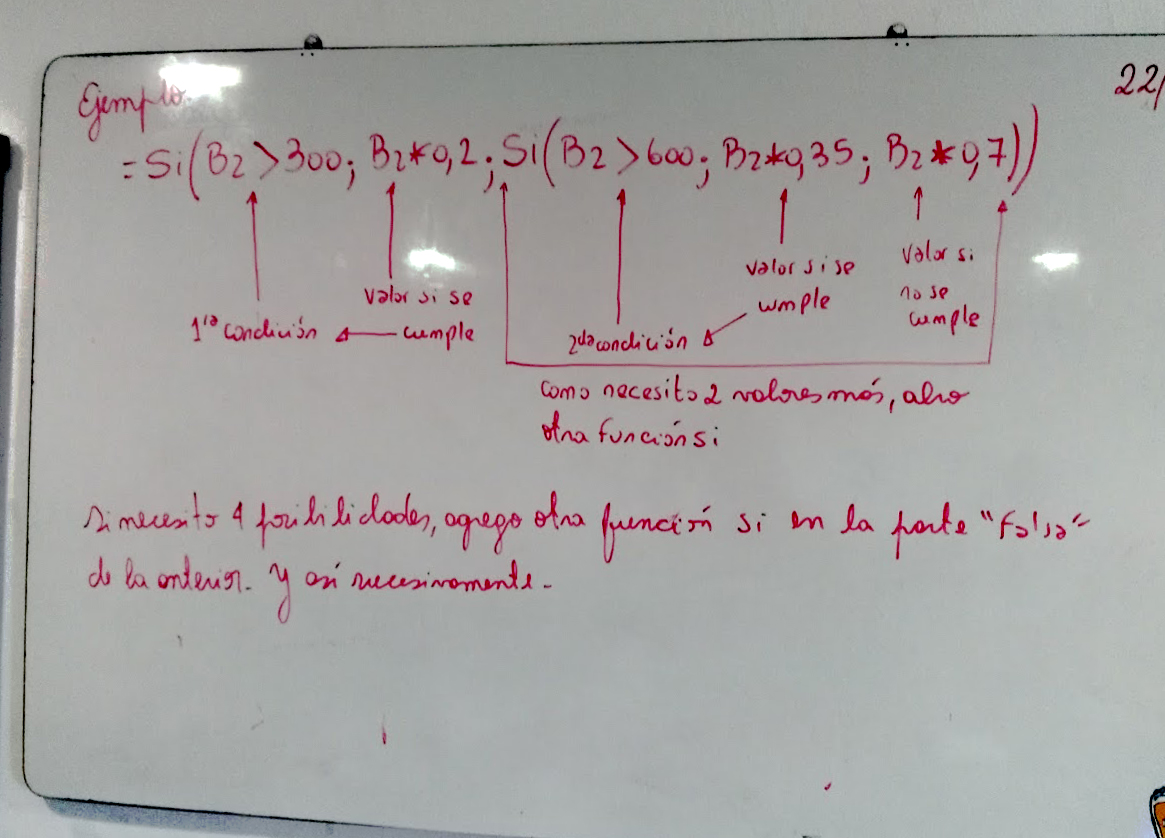 22/
Ejemplo
=Si(B2>300; B2*0,2; Si(B2>600; B2*0,35; B2*0,7))
1ra condición
valor si se
cumple
2da condición
valor si se
cumple
valor si
no se
cumple
como necesito 2 valores más, abro
otra función si
Si necesito 4 posibilidades, agrego otra función si en la parte "falsa"
de la anterior. Y así sucesivamente.